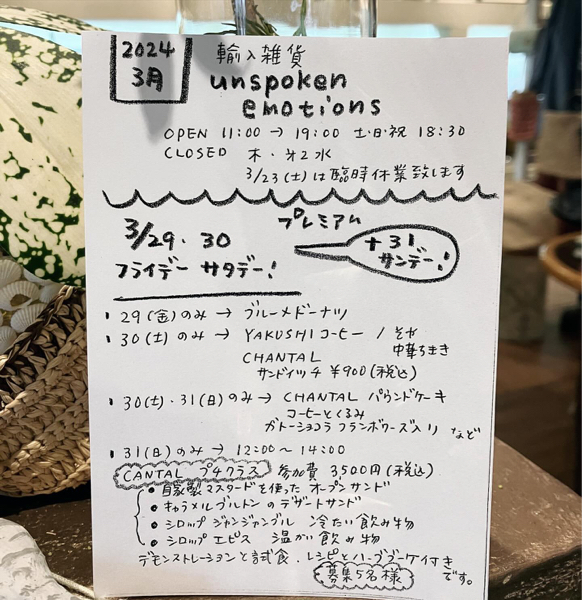 2024
3月
輸入雑貨
unspoken
emotions
OPEN 11:00→19:00 土・日・祝 18:30
CLOSED 木・第2水
3/23(土)は臨時休業致します
プレミアム
3/29・30
フライデー サタデー!
+31
サンデー!
29(金)のみ→ブルーメドーナツ
30(土)のみ→YAKUSHIコーヒー/そや
中華ちまき
CHANTAL
サンドイッチ ¥900(税込)
30(土)・31(日)のみ→CHANTAL パウンドケーキ
コーヒーとくるみ
ガトーショコラ フランボワーズ入り など
31(日)のみ→12:00〜14:00
CANTAL プチクラス 参加費 3500円(税込)
●自家製マスタードを使った オープンサンド
●キャラメルブルトンのデザートサンド
●シロップ ジャンジャンブル 冷たい飲み物
●シロップ エピス 温かい飲み物
デモンストレーションと試食、レシピとハーブブーケ付き
です。
募集5名様